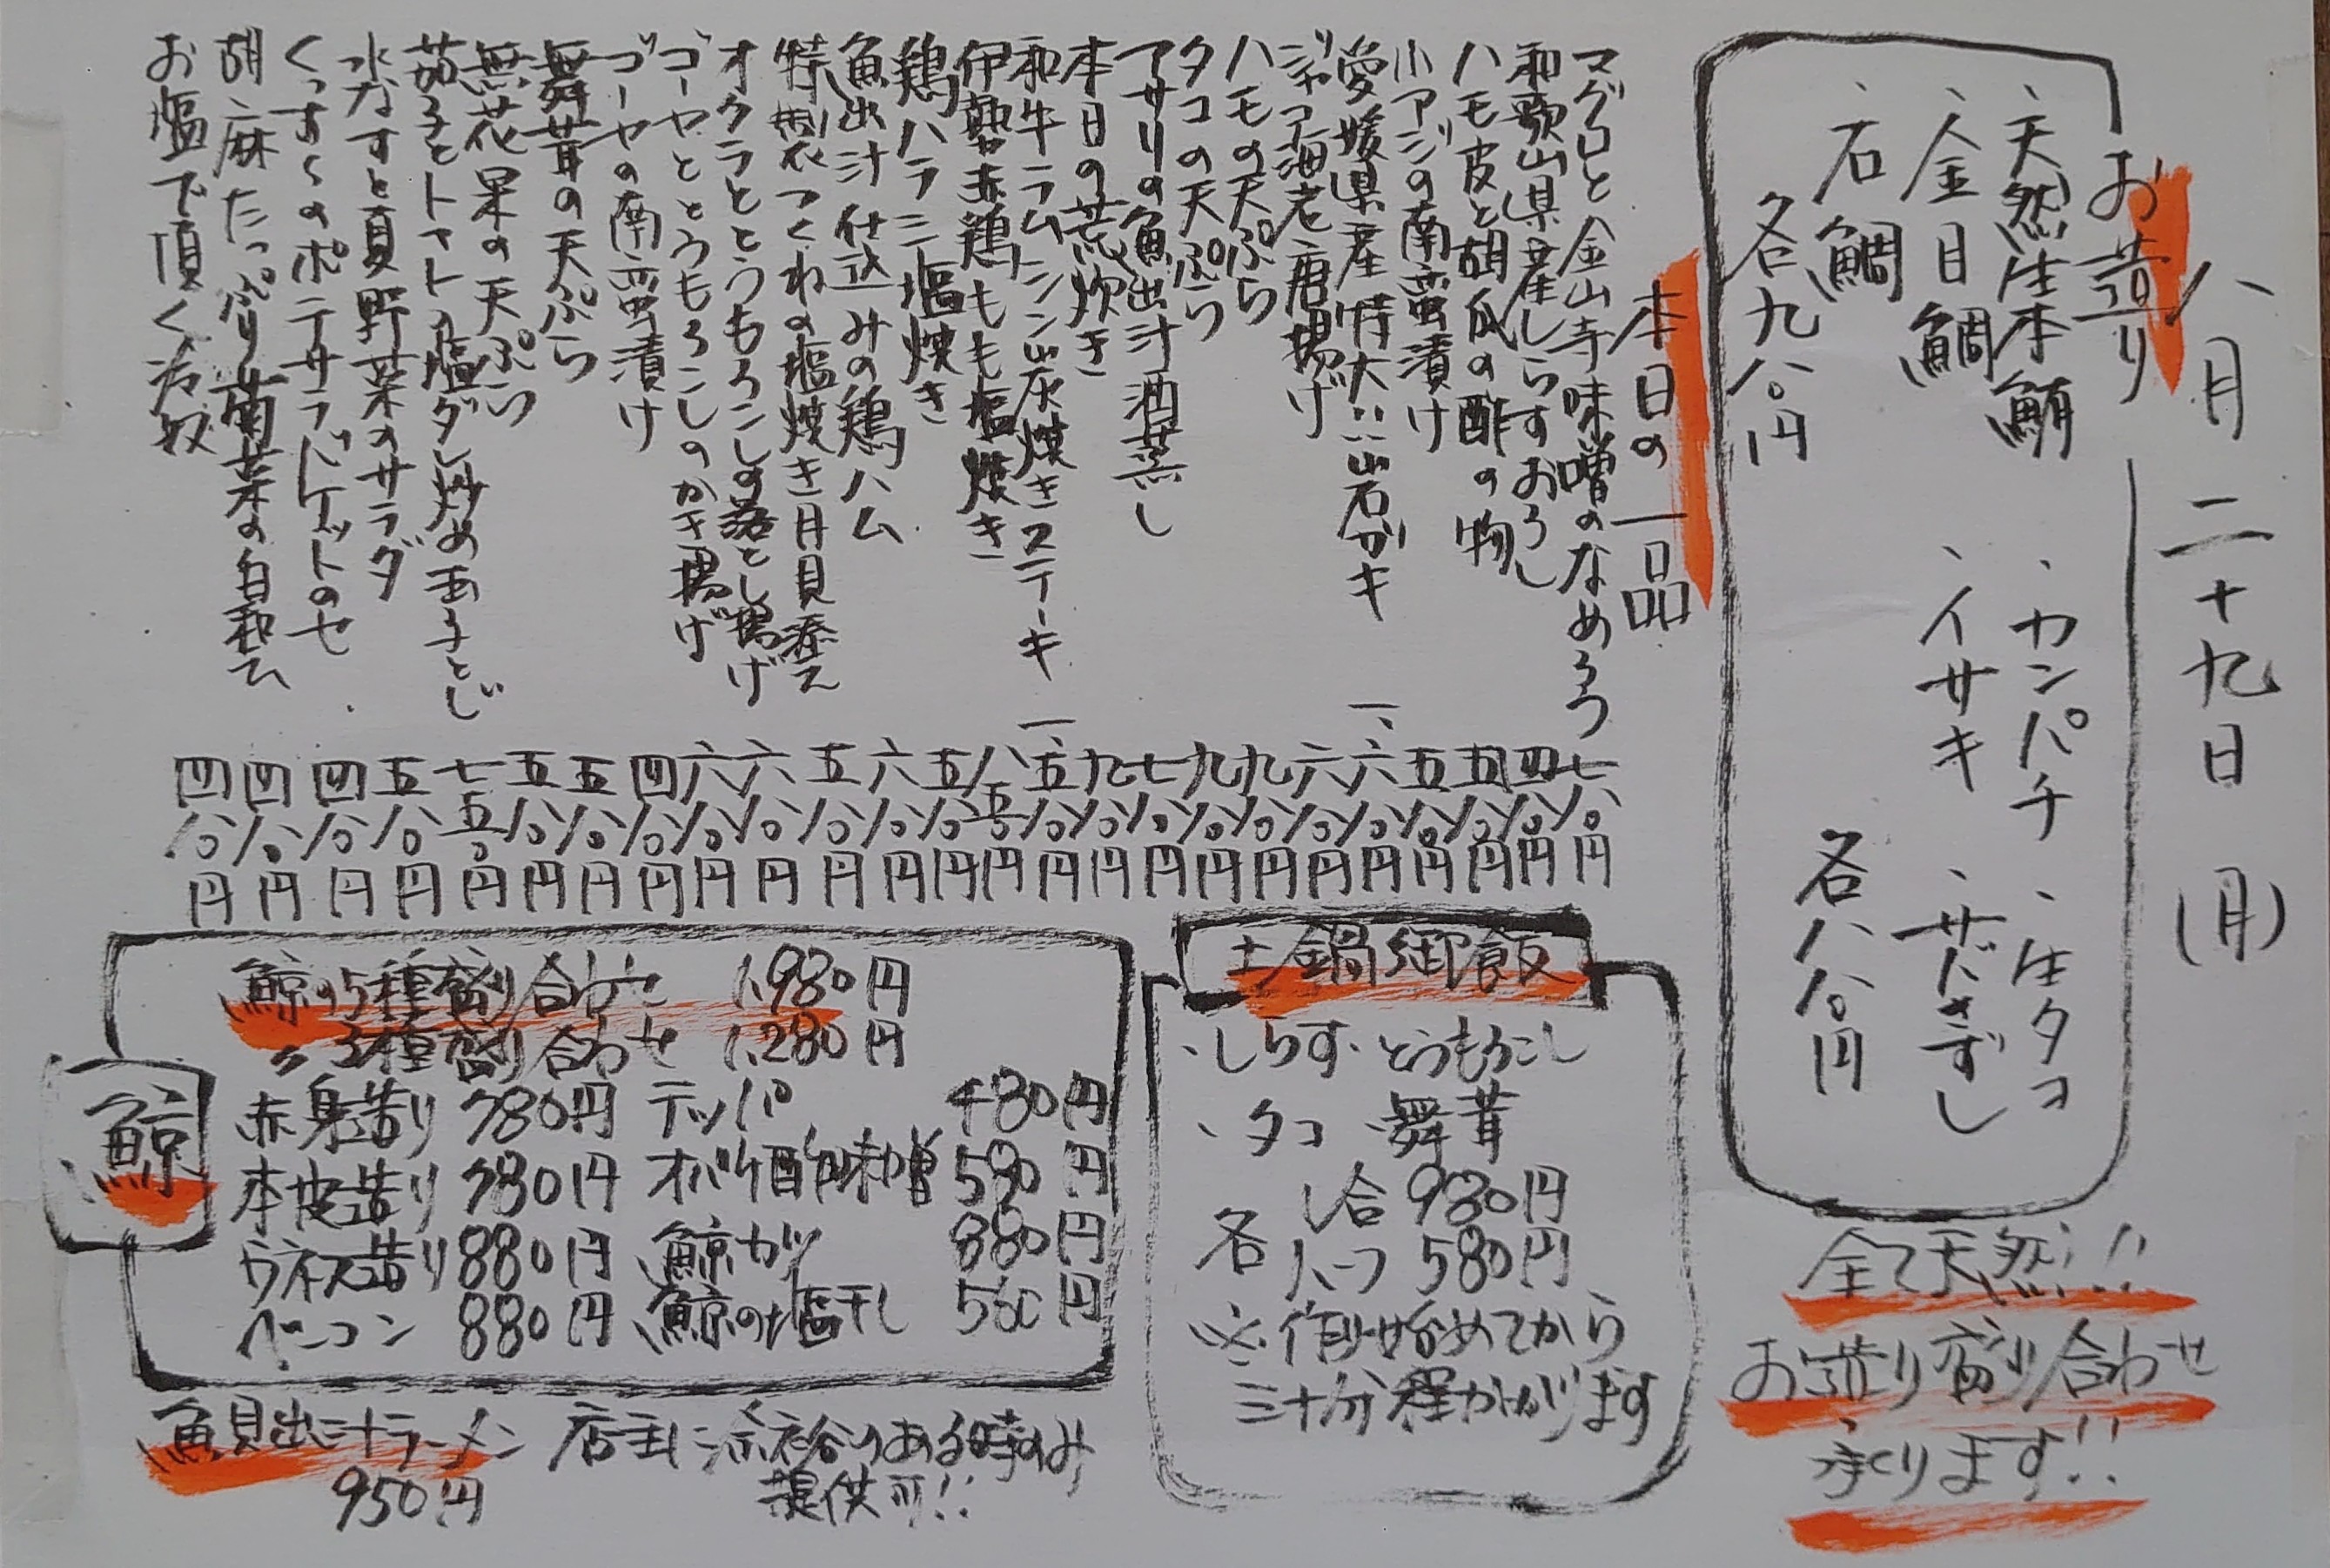 八月二十九日(月)
お造り
、天然生本鮪
、カンパチ
、生タコ
、金目鯛
、イサキ
、サドさずし
、石鯛
各九八〇円
各八八〇円
全て天然!!
お造り盛り合わせ
承ります!!
本日の一品
マグロと金山寺味噌のなめろう 七八〇円
和歌山県産しらすおろし 四八〇円
ハモ皮と胡瓜の酢の物 五八〇円
小アジの南蛮漬け 五八〇円
愛媛県産特大!!岩がキ 一、六八〇円
ジャコ海老唐揚げ 六八〇円
ハモの天ぷら 九八〇円
タコの天ぷら 九八〇円
アサリの魚出汁酒蒸し 七八〇円
本日の荒炊き 九八〇円
和牛ラムシン炭焼きステーキ 一、五八〇円
伊勢赤鶏もも塩焼き 八五〇円
鶏ハラミ塩焼き 五八〇円
魚出汁仕込みの鶏ハム 六八〇円
特製つくねの塩焼き月見添え 五八〇円
オクラととうもろこしの落とし揚げ 六八〇円
ゴーヤととうもろこしのかき揚げ 六八〇円
ゴーヤの南蛮漬け 四八〇円
舞茸の天ぷら 五八〇円
無花果の天ぷら 五八〇円
茄子とトマト塩ダレ炒め玉子とじ 七五〇円
水なすと夏野菜のサラダ 五八〇円
くっすくのポテサラバゲットのせ 四八〇円
胡麻たっぷり菊菜の白和え 四八〇円
お塩で頂く冷奴 四八〇円
土鍋御飯
、しらす、とうもろこし
、タコ、舞茸
各 一合 980円
ハーフ 580円
※作り始めてから
三十分程かかります
鯨
鯨の5種盛り合わせ 1,980円
〃 3種盛り合わせ 1,280円
赤身造り 780円 テッパ 480円
本皮造り 780円 オバケ酢味噌 580円
ウネス造り 880円 鯨カツ 880円
ベーコン 880円 鯨の塩干し 560円
魚貝出汁ラーメン 店主に余裕のある時のみ
950円 提供可!!